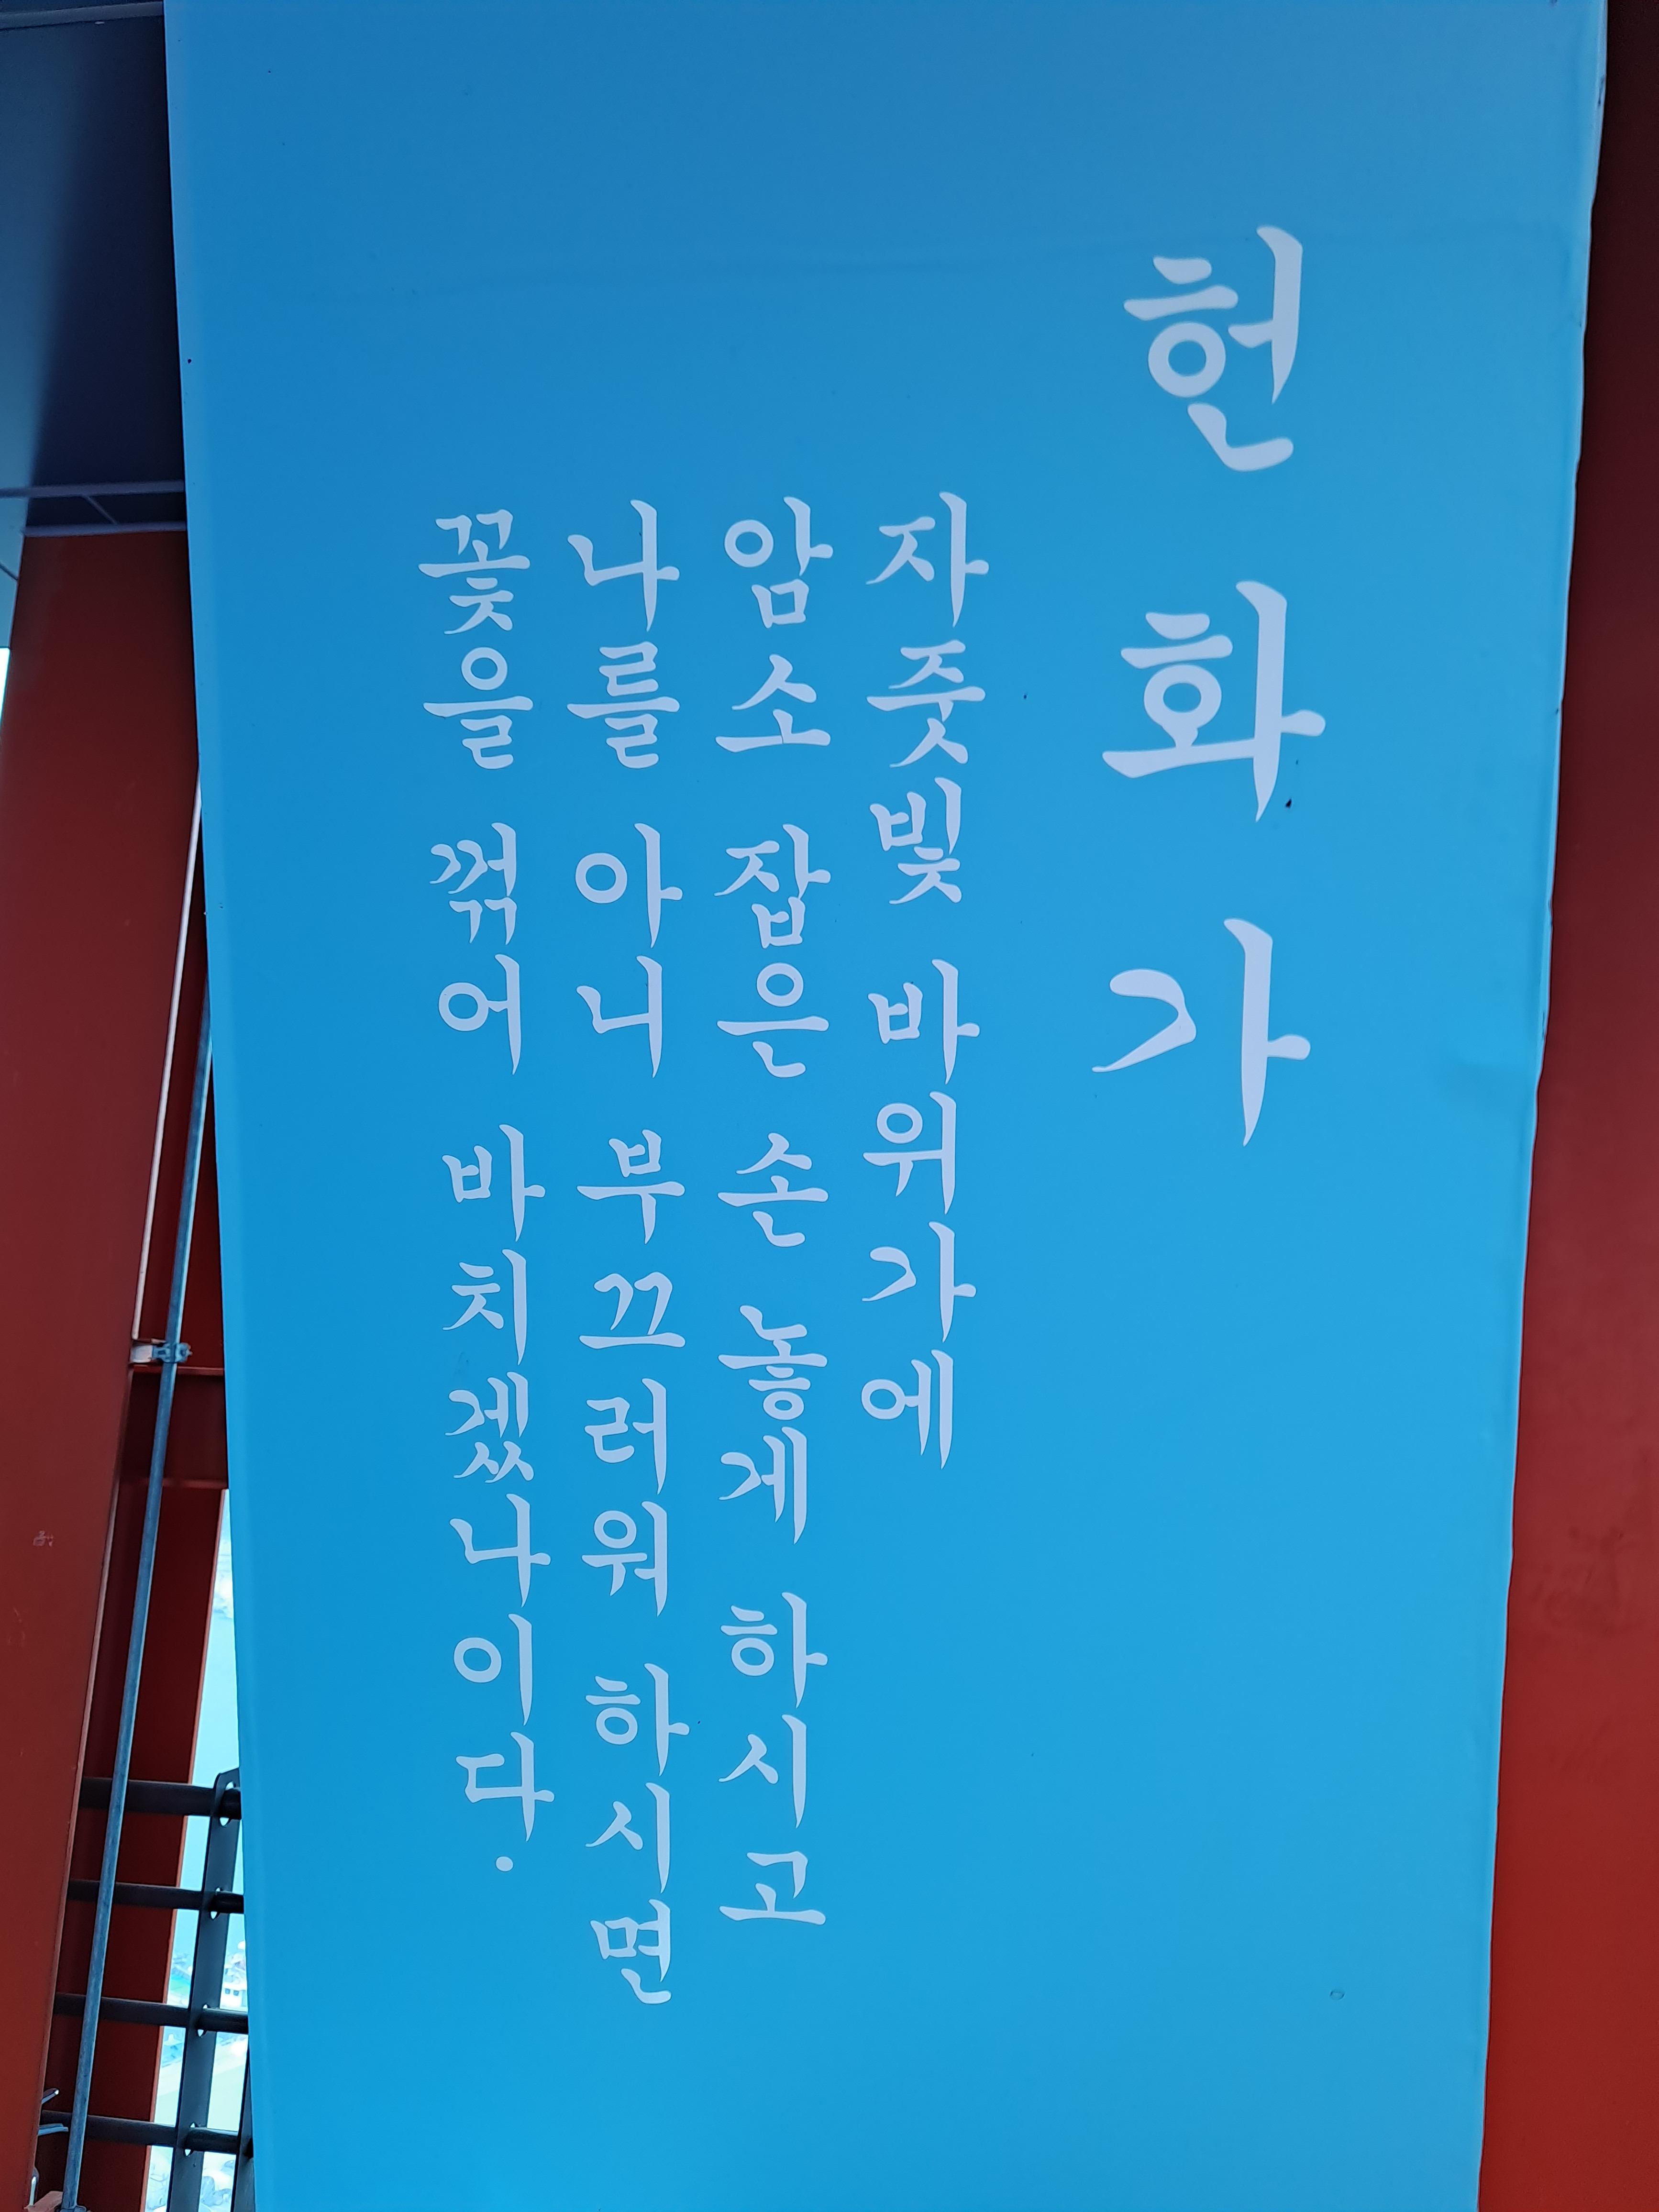 헌화가
자줏빛 바위가에
암소 잡은 손 놓게 하시고
나를 아니 부끄러워 하시면
꽃을 꺾어 바치겠나이다.